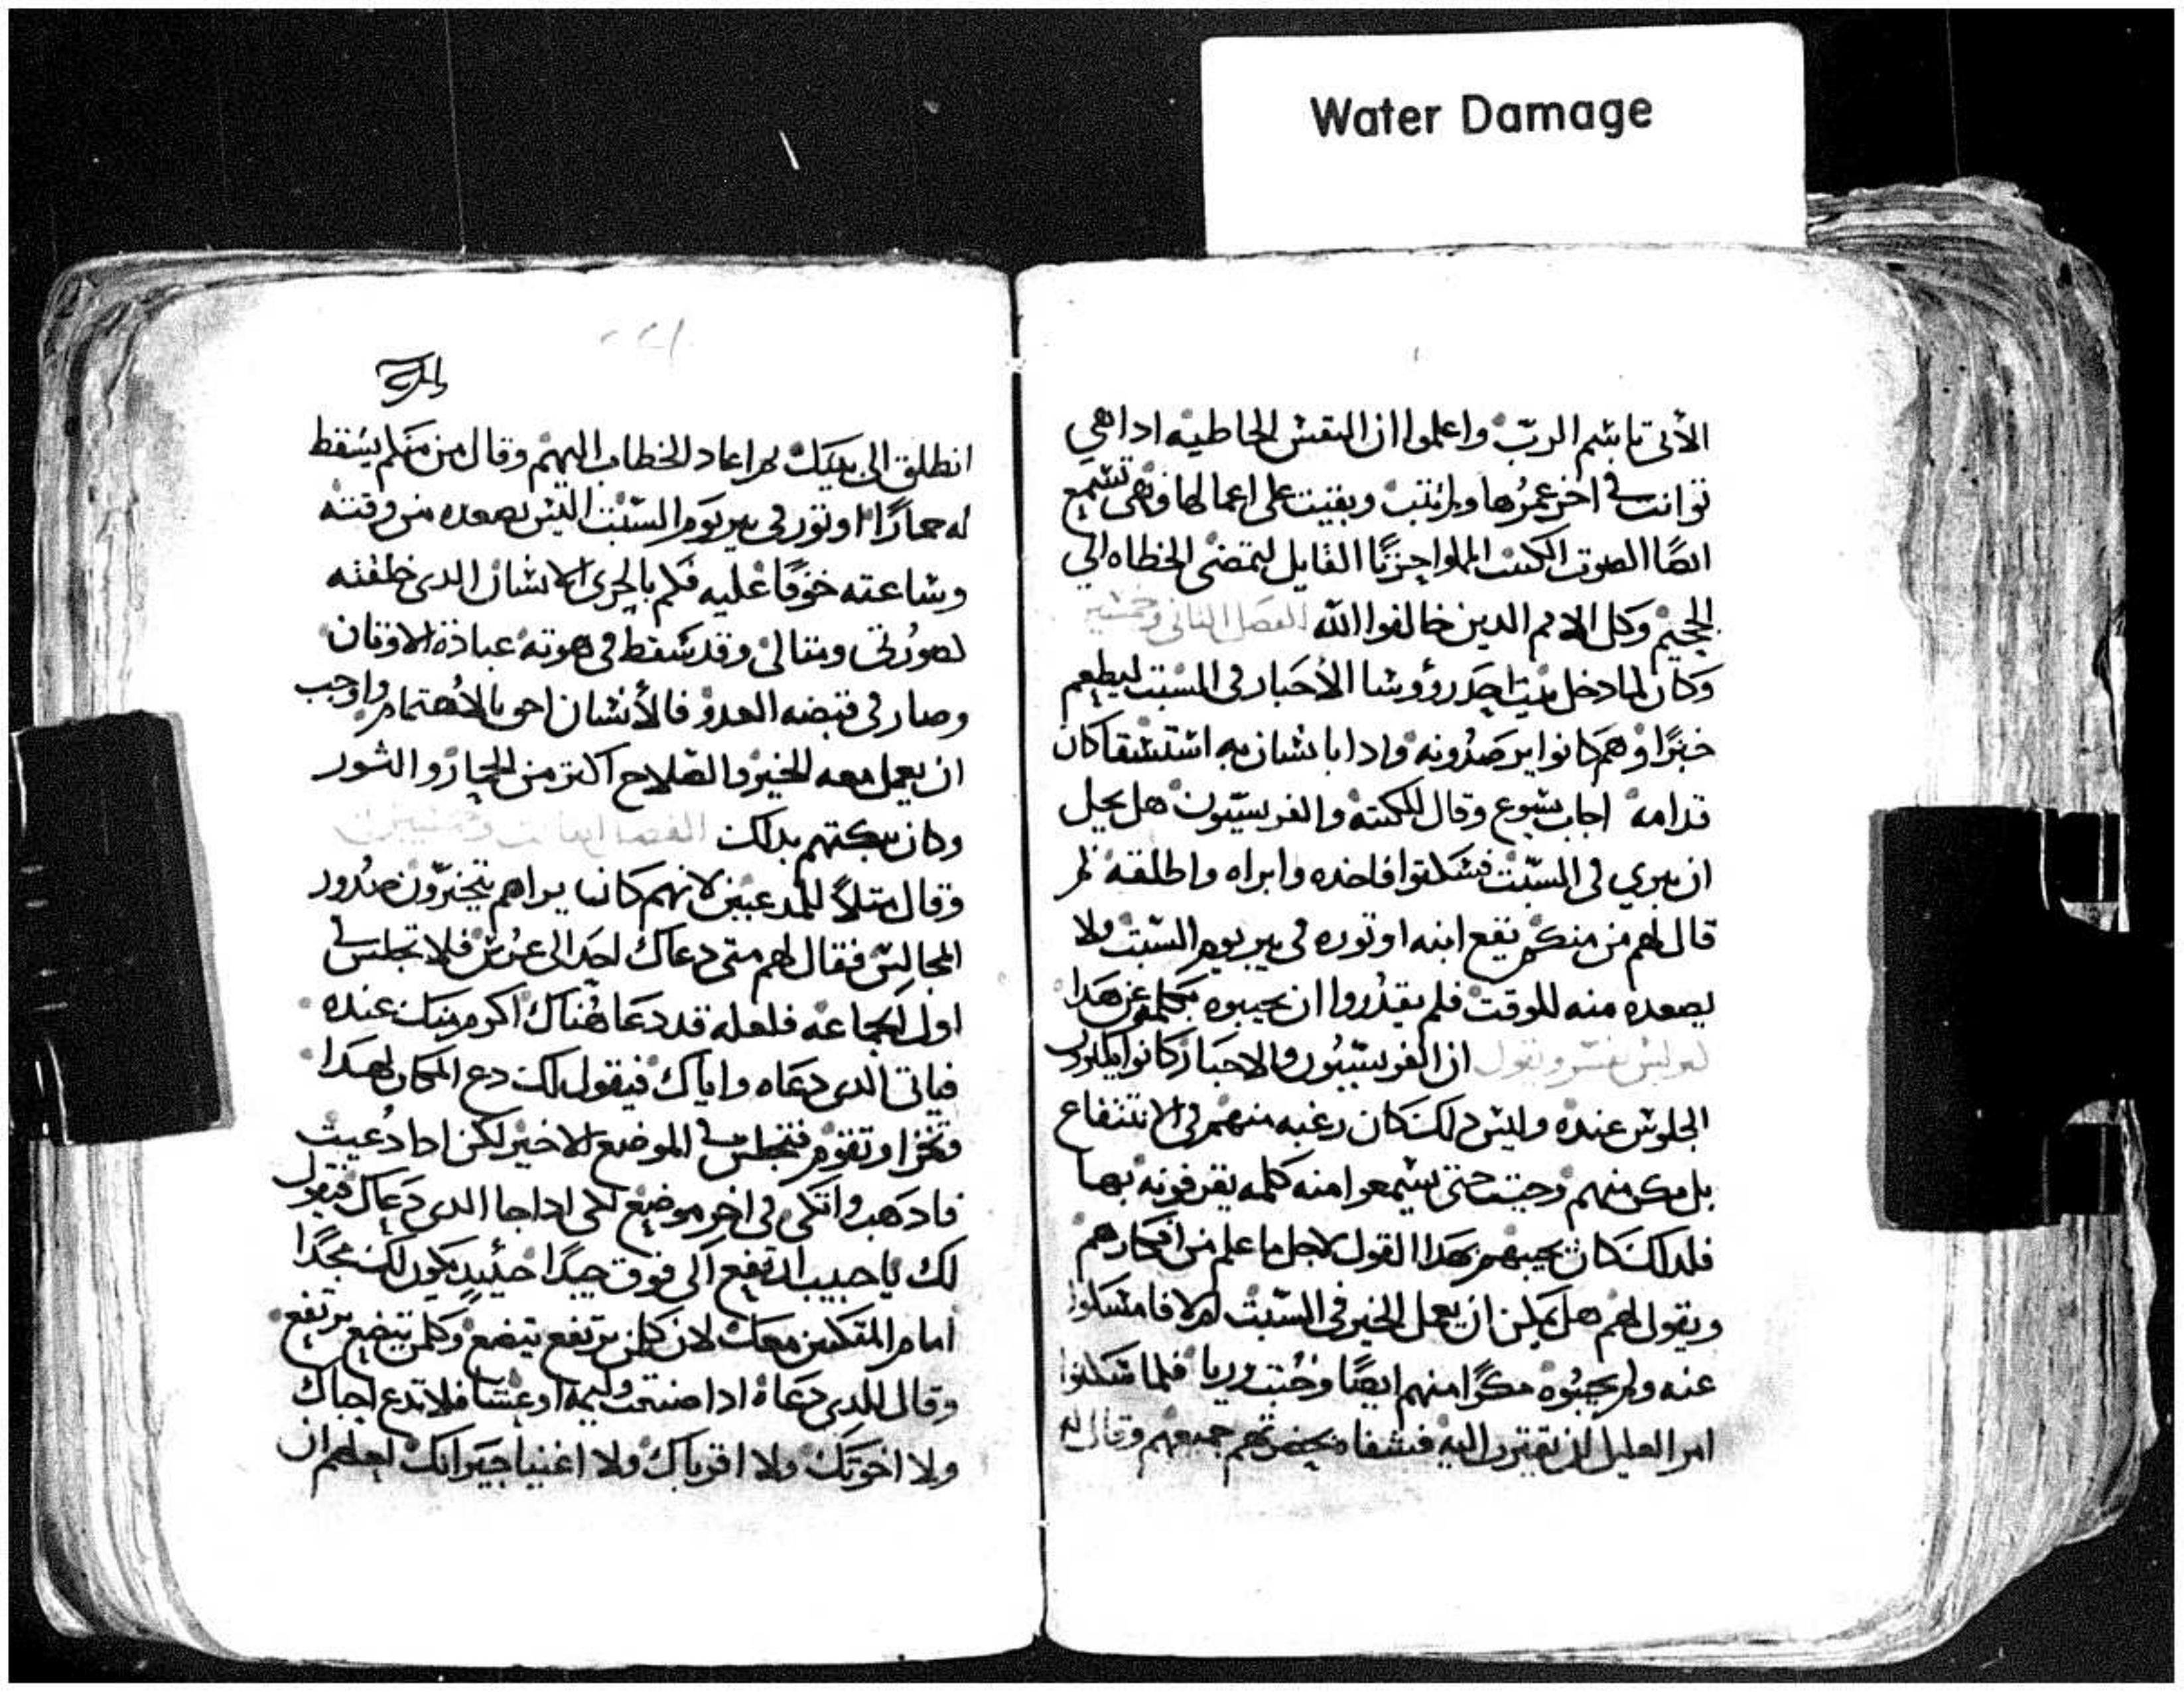 Water Damage
الآتي باسم الرب واعلموا ان النفس الخاطيه ادا هي
توانت في اخر عمرها ولم تتب وبقيت على اعمالها فهي تسمع
ايضا الصوت الملوا حزنا القايل لتمضي الخطاه الي
الجحيم وكل الامم الدين خالفوا الله الفصل التاني وخمسين
وكان لما دخل بيت احد رؤوسا الاحبار في السبت ليطعم
خبزا وهم كانوا يرصدونه وادا بانسان به استسقا كان
قدامه اجاب يسوع وقال للكتبة والفريسيون هل يحل
ان يبري في السبت فسكتوا فاخده وابراه واطلقه ثم
قال لهم من منكم يقع ابنه او توره في بير يوم السبت ولا
يصعده منه للوقت فلم يقدروا ان يجيبوه بكلمة عن هدا
يفسر ويقول ان الفريسيون والاحبار كانوا يطلبون
الجلوس عنده وليس دلك كان رغبه منهم في الانتفاع
بل مكر منهم وخبت حتى يسمعوا منه كلمه يقرفونه بها
فلدلك كان يجيبهم بهدا القول لاجل ما علم من افكارهم
ويقول لهم هل يمكن ان يعمل الخير في السبت ام لا فامسكوا
عنه ولم يجيبوه مكرا منهم ايضا وخبت وريا فلما سكتوا
امر العليل ان يقترب اليه فشفاه بحضرتهم جميعهم وقال له
انطلق الى بيتك تم اعاد الخطاب اليهم وقال من منكم يسقط
له حمارا او تور في بير يوم السبت اليس يصعده من وقته
وساعته خوفا عليه فكم بالحرى الانسان الدى خلقته
لصورتي ومتالي وقد سقط في هوته عبادة الاوتان
وصار في قبضه العدو فالأنسان احق بالاهتمام واوجب
ان يعمل معه الخير والصلاح اكتر من الحمار والتور
وكان سكتهم بدلك
وقال متلا للمدعيين لانهم كانا يراهم يتخيرون صدور
المجالس فقال لهم متى دعاك احد الى عرس فلا تجلس في
اول الجماعه فلعله قد دعا هناك اكرم منك عنده
فياتي الدى دعاه واياك فيقول لك دع المكان لهدا
فتخزا وتقوم فتجلس في الموضع الاخير لكن ادا دعيت
فادهب واتكي في اخر موضع لكي ادا جا الدى دعاك فيقول
لك يا حبيب ارتفع الى فوق جيدا حينيد يكون لك مجدا
امام المتكيين معك لان كل من يرتفع يتضع وكل من يتضع يرتفع
وقال للدى دعاه ادا صنعت وليمه او عشا فلا تدع احباك
ولا اخوتك ولا اقرباك ولا اغنيا جيرانك لعلهم ان